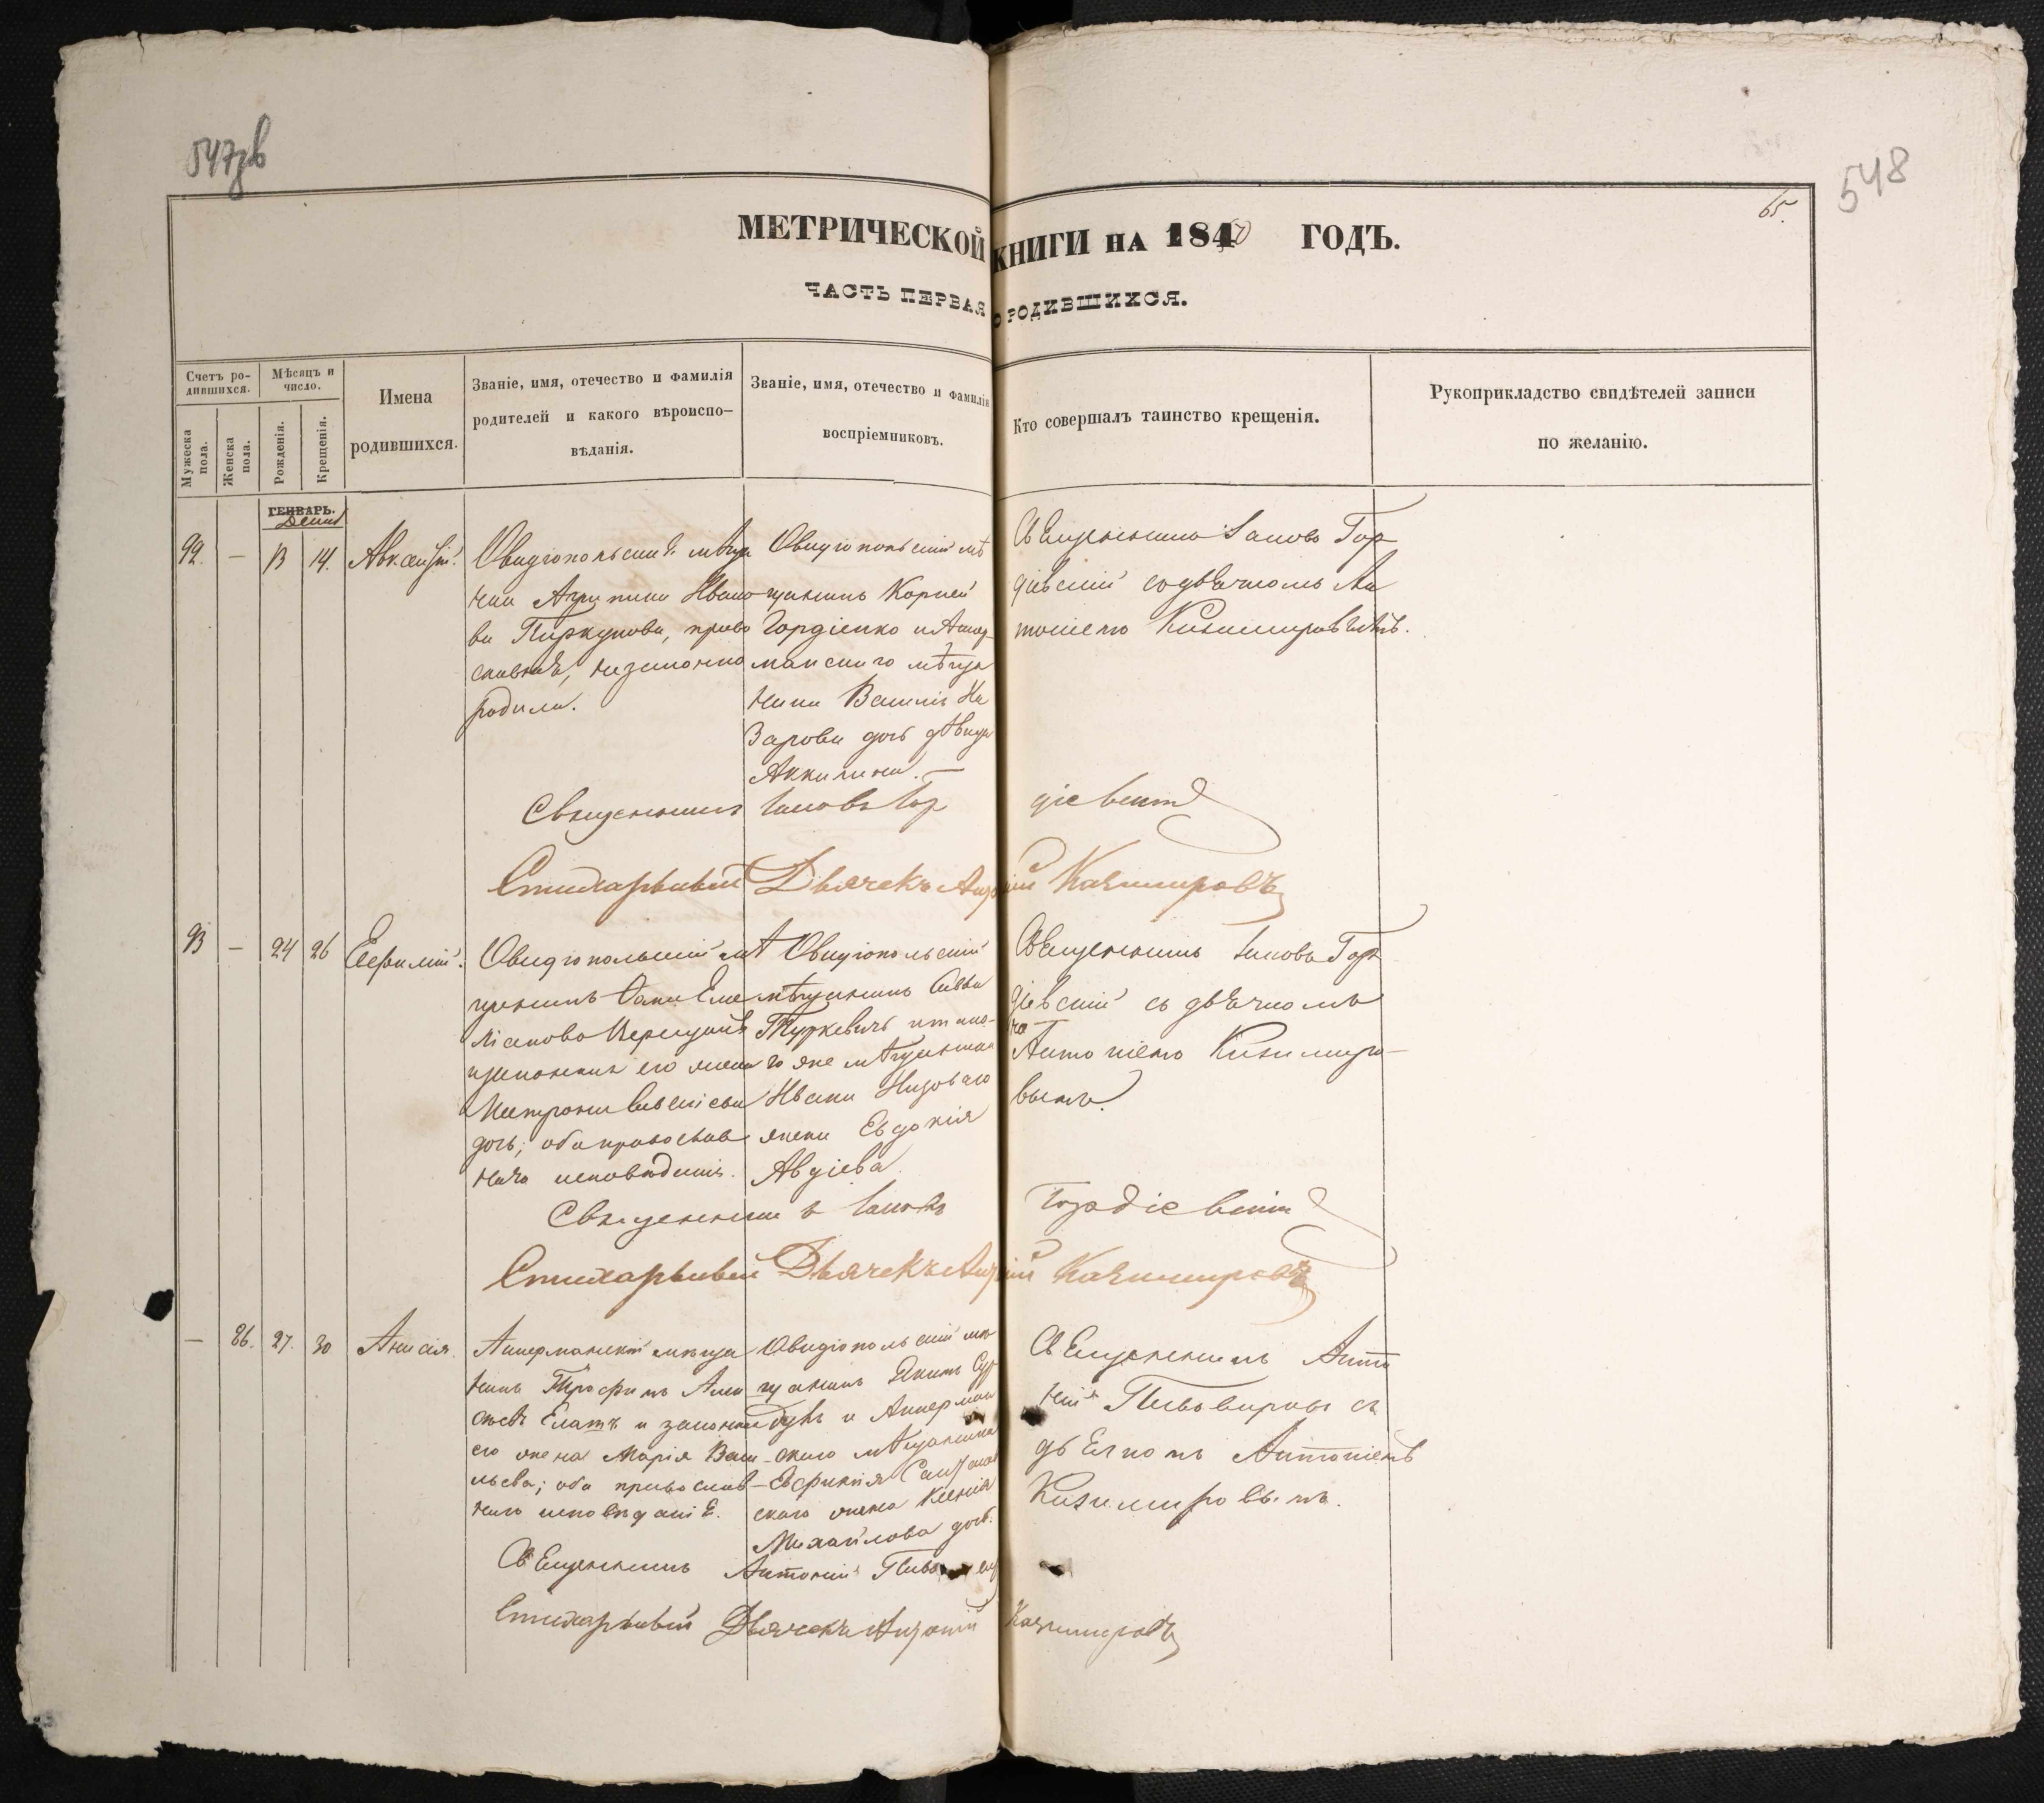 547 зв
548
65.
МЕТРИЧЕСКОЙ КНИГИ НА 1850 ГОДЪ.
ЧАСТЬ ПЕРВАЯ О РОДИВШИХСЯ.
Счетъ ро-
дившихся.
Мужеска пола.
Женска пола.
Мѣсяцъ и
число.
Рожденія.
Крещенія.
Имена
родившихся.
Званіе, имя, отечество и фамилія
родителей и какого вѣроиспо-
вѣданія.
Званіе, имя, отечество и фамилія
воспріемниковъ.
Кто совершалъ таинство крещенія.
Рукоприкладство свидѣтелей записи
по желанію.
ГЕНВАРЬ.
92. — 13 14.
Овидіопольская мѣща
нка Агрипина Ивано
ва Пиркулова, право
славная, незаконно
родила.
Овидіопольскій мѣ
щанинъ Корней
Гордіенко и Аккер
манскаго мѣща
нина Василія На
зарова дочь дѣвица
Аккилина. —
Священникъ Іаковъ Гор
діевскій съ дьячкомъ Ан
тоніемъ Казимировымъ.
Священникъ Іаковъ Гордіевскій
Стихарный Дьячекъ Антоній Казимировъ
93 — 24 26 Евфимій.
Овидіопольскій мѣ
щанинъ Яковъ Еме
ліановъ и
законная его жена
Матрона Савеліева
дочь; оба православ
наго исповѣданія.
Овидіопольскій
мѣщанинъ Савва
Туркевичъ и тако-
го же мѣщанина
Ивана Низоваго
жена Евдокія
Авдіева.
Священникъ Іаковъ Гор
діевскій съ дьячкомъ
Антоніемъ Казимиро-
вымъ.
Священникъ Іаковъ Гордіевскій
Стихарный Дьячекъ Антоній Казимировъ
— 86. 27. 30 Анисія.
Аккерманскій мѣща
нинъ Трофимъ Алек
сѣевъ Елатъ и законная
его жена Марія Васи
льева; оба православ
наго исповѣданія.
Овидіопольскій мѣ
щанинъ Якимъ Сур
дукъ и Аккерман
скаго мѣщанина
жена Ксенія
Михайлова дочь.
Священникъ Анто
ній Пивоваровъ съ
дьячкомъ Антоніемъ
Казимировымъ.
Священникъ Антоній
Стихарный Дьячекъ Антоній Казимировъ